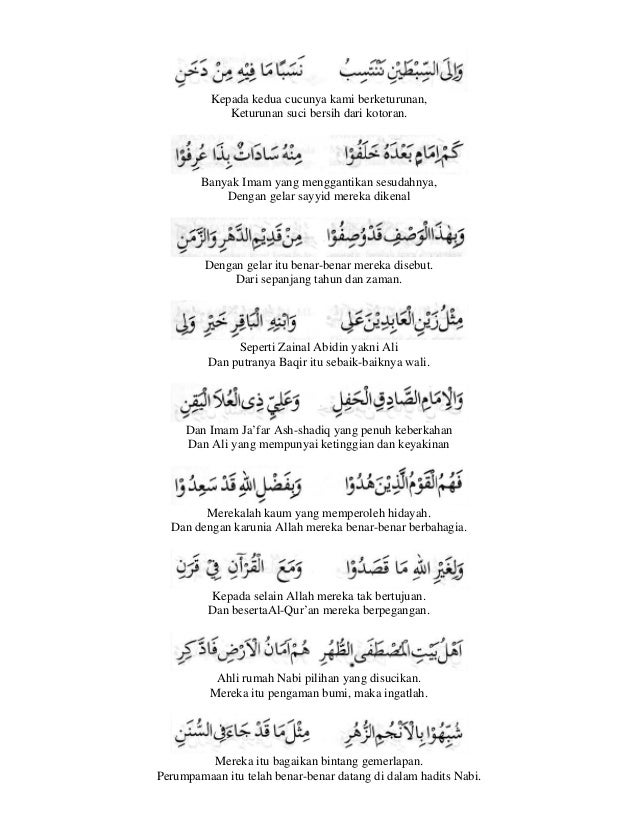 وَإِلَى السِّبْطَيْنِ نَنْتَسِبُ نَسَبًا مَا فِيْهِ مِنْ دَخَنِ
Kepada kedua cucunya kami berketurunan,
Keturunan suci bersih dari kotoran.
كَمْ إِمَامٍ بَعْدَهُ خَلَفُوْا مِنْهُ سَادَاتٌ بِذَا عُرِفُوْا
Banyak Imam yang menggantikan sesudahnya,
Dengan gelar sayyid mereka dikenal
وَبِهٰذَا الْوَصْفِ قَدْ وُصِفُوْا مِنْ قَدِيْمِ الدَّهْرِ وَالزَّمَنِ
Dengan gelar itu benar-benar mereka disebut.
Dari sepanjang tahun dan zaman.
مِثْلُ زَيْنِ الْعَابِدِيْنَ عَلِى وَابْنِهِ الْبَاقِرِ خَيْرِ وَلِى
Seperti Zainal Abidin yakni Ali
Dan putranya Baqir itu sebaik-baiknya wali.
وَالْاِمَامِ الصَّادِقِ الْحَفِلِ وَعَلِيٍّ ذِى الْعُلَا الْيَقِنِ
Dan Imam Ja’far Ash-shadiq yang penuh keberkahan
Dan Ali yang mempunyai ketinggian dan keyakinan
فَهُمُ الْقَوْمُ الَّذِيْنَ هُدُوْا وَبِفَضْلِ اللهِ قَدْ سَعِدُوْا
Merekalah kaum yang memperoleh hidayah.
Dan dengan karunia Allah mereka benar-benar berbahagia.
وَلِغَيْرِ اللهِ مَا قَصَدُوْا وَمَعَ الْقُرْآنِ فِيْ قَرَنِ
Kepada selain Allah mereka tak bertujuan.
Dan besertaAl-Qur’an mereka berpegangan.
اَهْلُ بَيْتِ الْمُصْطَفَى الطُّهُرِ هُمْ اَمَانُ الْاَرْضِ فَادَّكِرِ
Ahli rumah Nabi pilihan yang disucikan.
Mereka itu pengaman bumi, maka ingatlah.
شُبِّهُوْا بِالْاَنْجُمِ الزُّهُرِ مِثْلَ مَا قَدْ جَاءَ فِى السُّنَنِ
Mereka itu bagaikan bintang gemerlapan.
Perumpamaan itu telah benar-benar datang di dalam hadits Nabi.